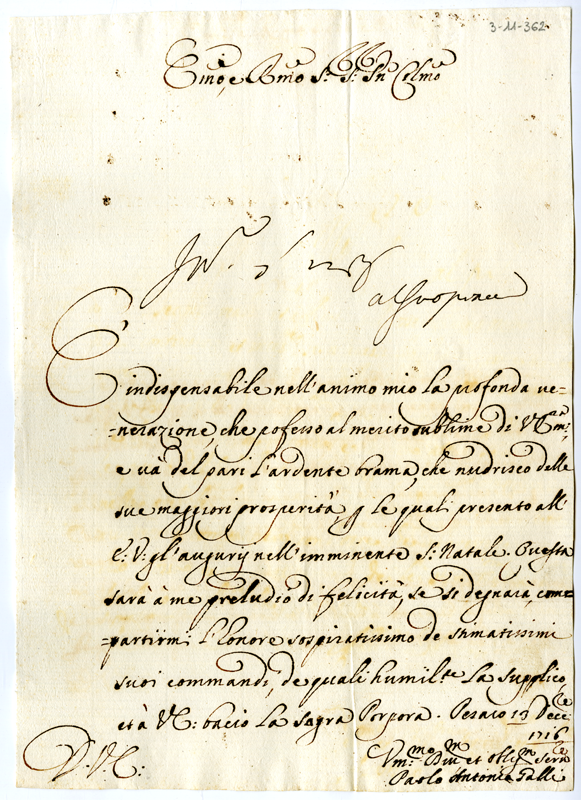 3-11-362
Emo, e Rmo Sr. Sr. Pn Colmo
E indispensabile nell'animo mio la profonda ve=
=nerazione, che pofesso al merito sublime di V. Emza;
e và del pari l'ardente brama, che nudrisco delle
sue maggiori prosperità, p le quali presento all'
E: V: gl'augurij nell'imminente S: Natale. Questa
sarà à me preludio di felicità, se si degnarà, com=
=partirmi l'honore sospiratissimo de stimatissimi
suoi commandi, de quali humilte la supplico,
et à V.E: bacio la Sagra Porpora. Pesaro 13 Dece
1716
D. V. E:
Vmmo Dmo et obligmo Serre
Paolo Antonio Galli